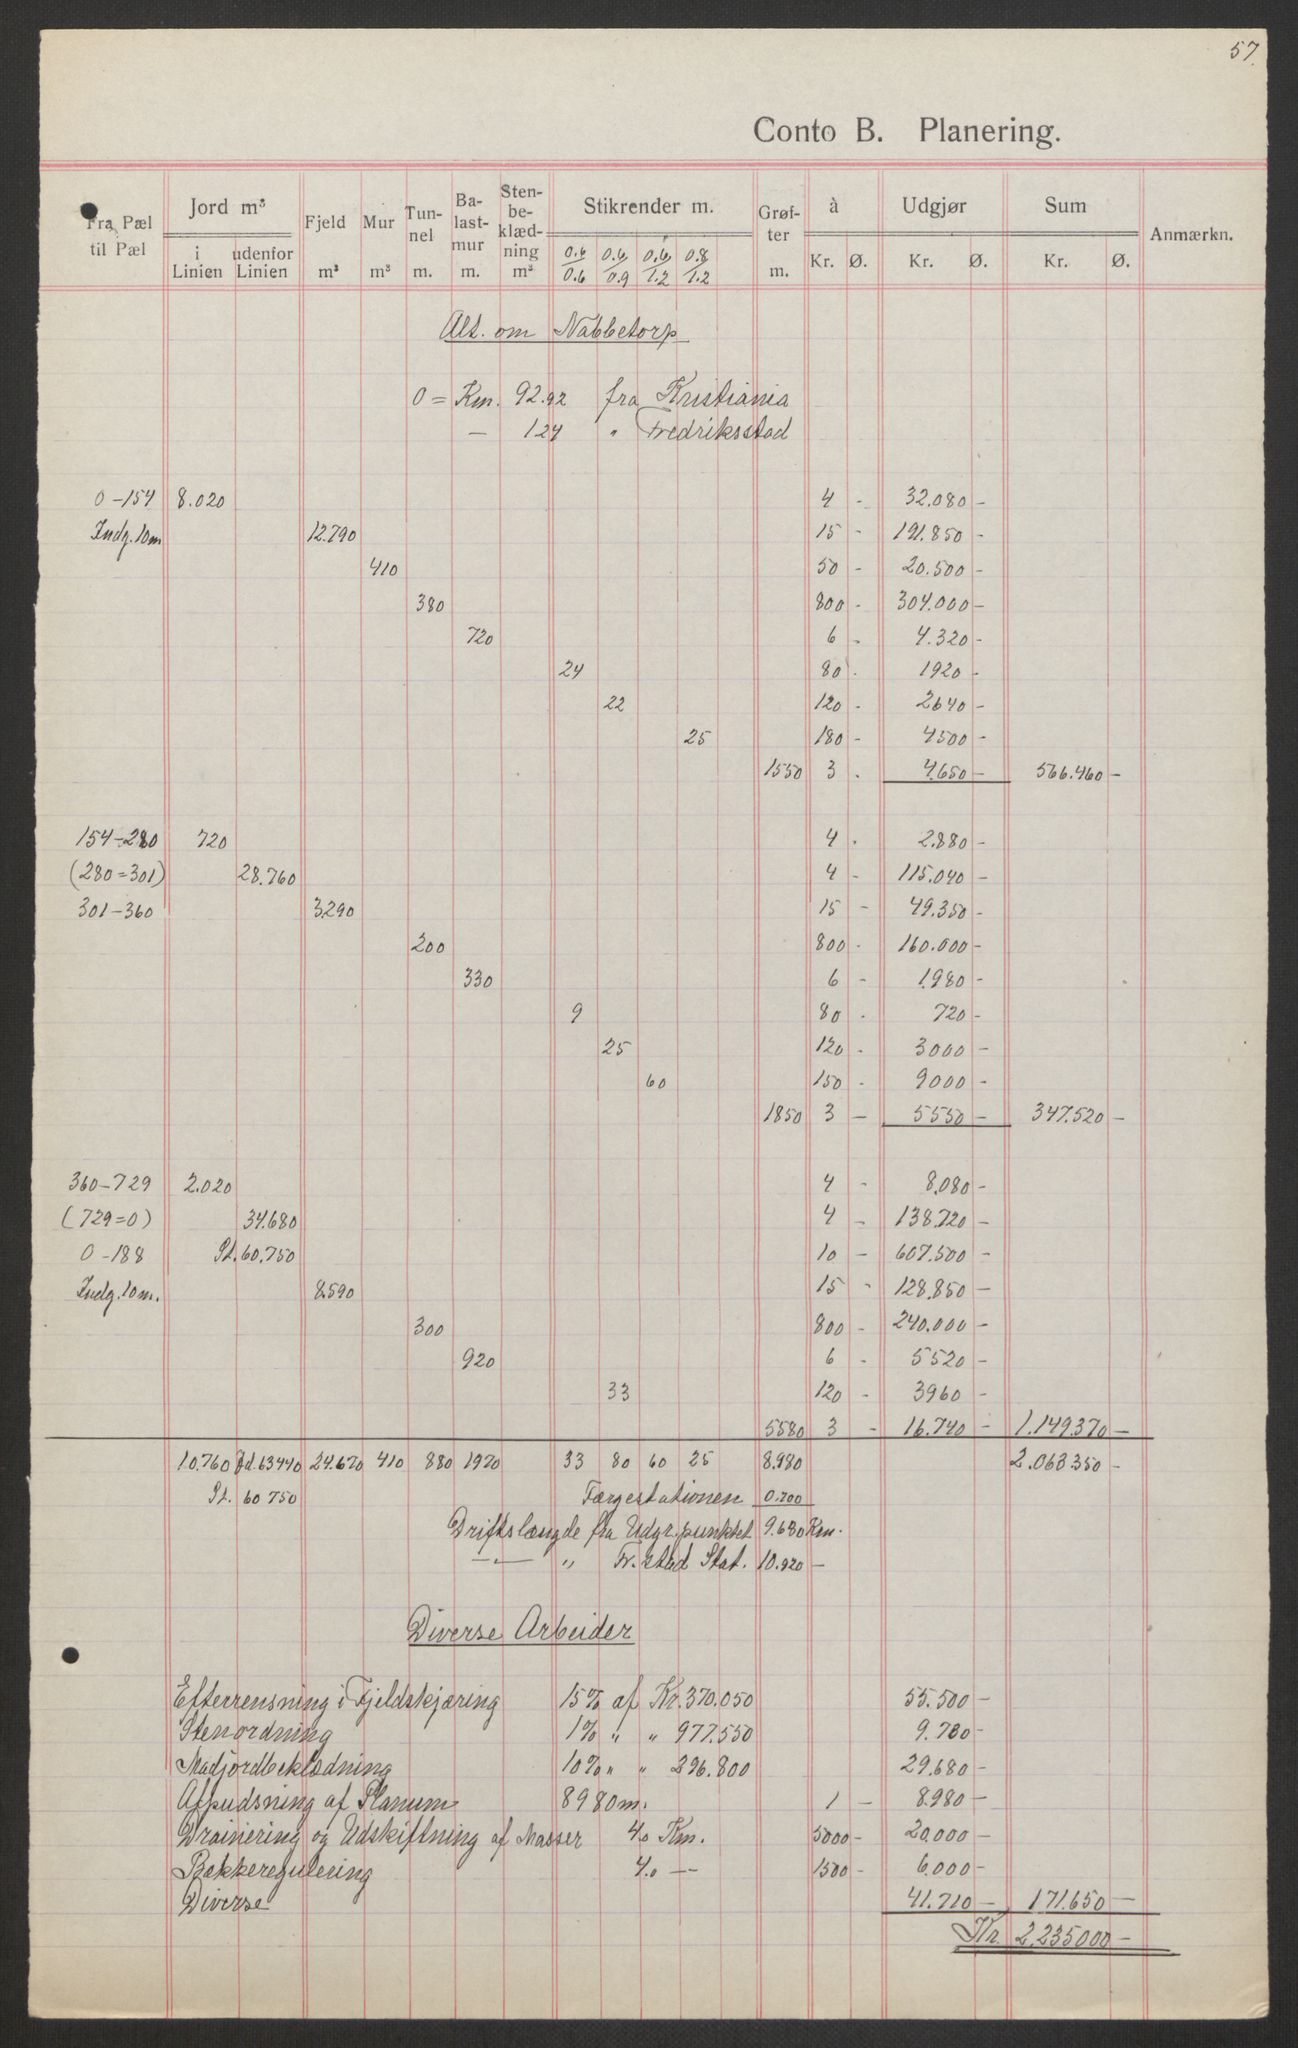 57.
Conto B. Planering.
Fra Pæl til Pæl | Jord m³ i Linien | Jord m³ udenfor Linien | Fjeld m³ | Mur m³ | Tunnel m. | Balastmur m. | Stenbeklædning m² | Stikrender m. 0.6/0.6 | 0.6/0.9 | 0.6/1.2 | 0.8/1.2 | Grøfter m. | à Kr. Ø. | Udgjør Kr. Ø. | Sum Kr. Ø. | Anmærkn.
Alt. om Nabbetorp
0 = Km. 92.92 fra Kristiania
— 1.24 " Fredriksstad
0-154 8.020 4 - 32.080 -
Indg. 10m 12.790 15 - 191.850 -
410 50 - 20.500 -
380 800 - 304.000 -
720 6 - 4.320 -
24 80 - 1920 -
22 120 - 2640 -
25 180 - 4500 -
1550 3 - 4.650 - 566.460 -
154-280 720 4 - 2.880 -
(280=301) 28.760 4 - 115.040 -
301-360 3.290 15 - 49.350 -
200 800 - 160.000 -
330 6 - 1.980 -
9 80 - 720 -
25 120 - 3000 -
60 150 - 9000 -
1850 3 - 5550 - 347.520 -
360-729 2.020 4 - 8.080 -
(729=0) 34.680 4 - 138.720 -
0-188 St. 60.750 10 - 607.500 -
Indg. 10m. 8.590 15 - 128.850 -
300 800 - 240.000 -
920 6 - 5520 -
33 120 - 3960 -
5580 3 - 16.740 - 1.149.370 -
10.760 Jd. 63440 24.670 410 880 1970 33 80 60 25 8.980 2.063.350 -
St. 60 750 Færgestationen 0.700
Driftslængde fra Udgr.punktet 9.680 Km.
—"— " Fr.stad Stat. 10.920 —
Diverse Arbeider
Efterrensning i Fjeldskjæring 15% af Kr. 370.050 55.500 -
Stenordning 1% " " 977.550 9.780 -
Madjordbeklædning 10% " " 296.800 29.680 -
Afpudsning af Planum 8980m. 1 - 8.980 -
Drainering og Udskiftning af Masser 4.0 Km. 5000 - 20.000 -
Bekkeregulering 4.0 — 1500 - 6.000 -
Diverse 41.710 - 171.650 -
Kr. 2.235000 -